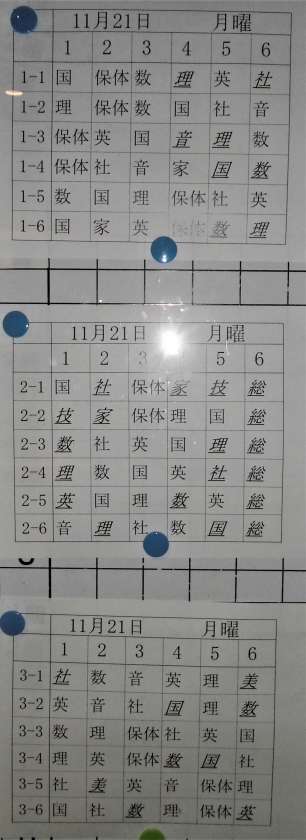 11月21日 月曜
1 2 3 4 5 6
1-1 国 保体 数 理 英 社
1-2 理 保体 数 国 社 音
1-3 保体 英 国 音 理 数
1-4 保体 社 音 家 国 数
1-5 数 国 理 保体 社 英
1-6 国 家 英 保体 数 理
11月21日 月曜
1 2 3 5 6
2-1 国 社 保体 家 技 総
2-2 技 家 保体 理 国 総
2-3 数 社 英 国 理 総
2-4 理 数 国 英 社 総
2-5 英 国 理 数 英 総
2-6 音 理 社 数 国 総
11月21日 月曜
1 2 3 4 5 6
3-1 社 数 音 英 理 美
3-2 英 音 社 国 理 数
3-3 数 理 保体 社 英 国
3-4 理 英 保体 数 国 社
3-5 社 美 英 音 保体 理
3-6 国 社 数 理 保体 英